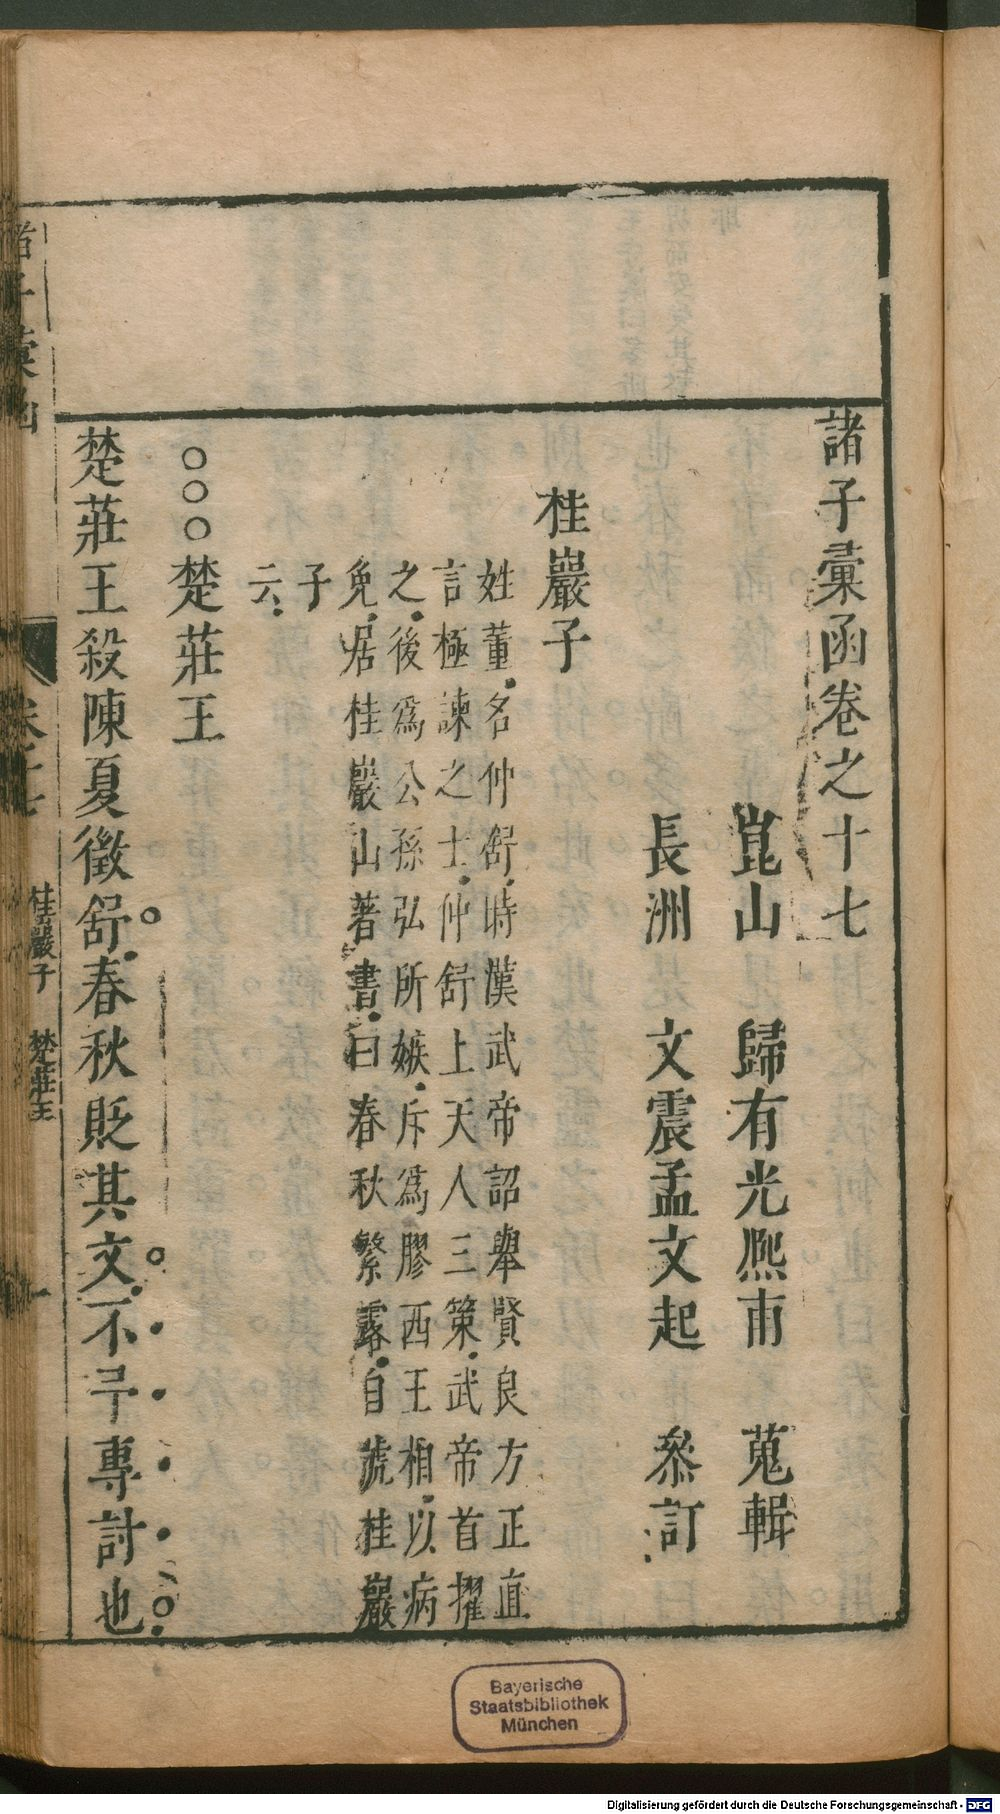 諸子彙函卷之十七
崑山　歸有光熈甫　蒐輯
長洲　文震孟文起　叅訂
桂巖子
姓董名仲舒時漢武帝詔舉賢良方正直
言極諫之士仲舒上天人三策武帝首擢
之後爲公孫弘所嫉斥爲膠西王相以病
免居桂巖山著書曰春秋繁露自號桂巖
子
云
○○○楚莊王
楚莊王殺陳夏徵舒春秋貶其文不予專討也
諸子彙函
卷十七
桂巖子　楚莊王
一
Bayerische
Staatsbibliothek
München
Digitalisierung gefördert durch die Deutsche Forschungsgemeinschaft - DFG